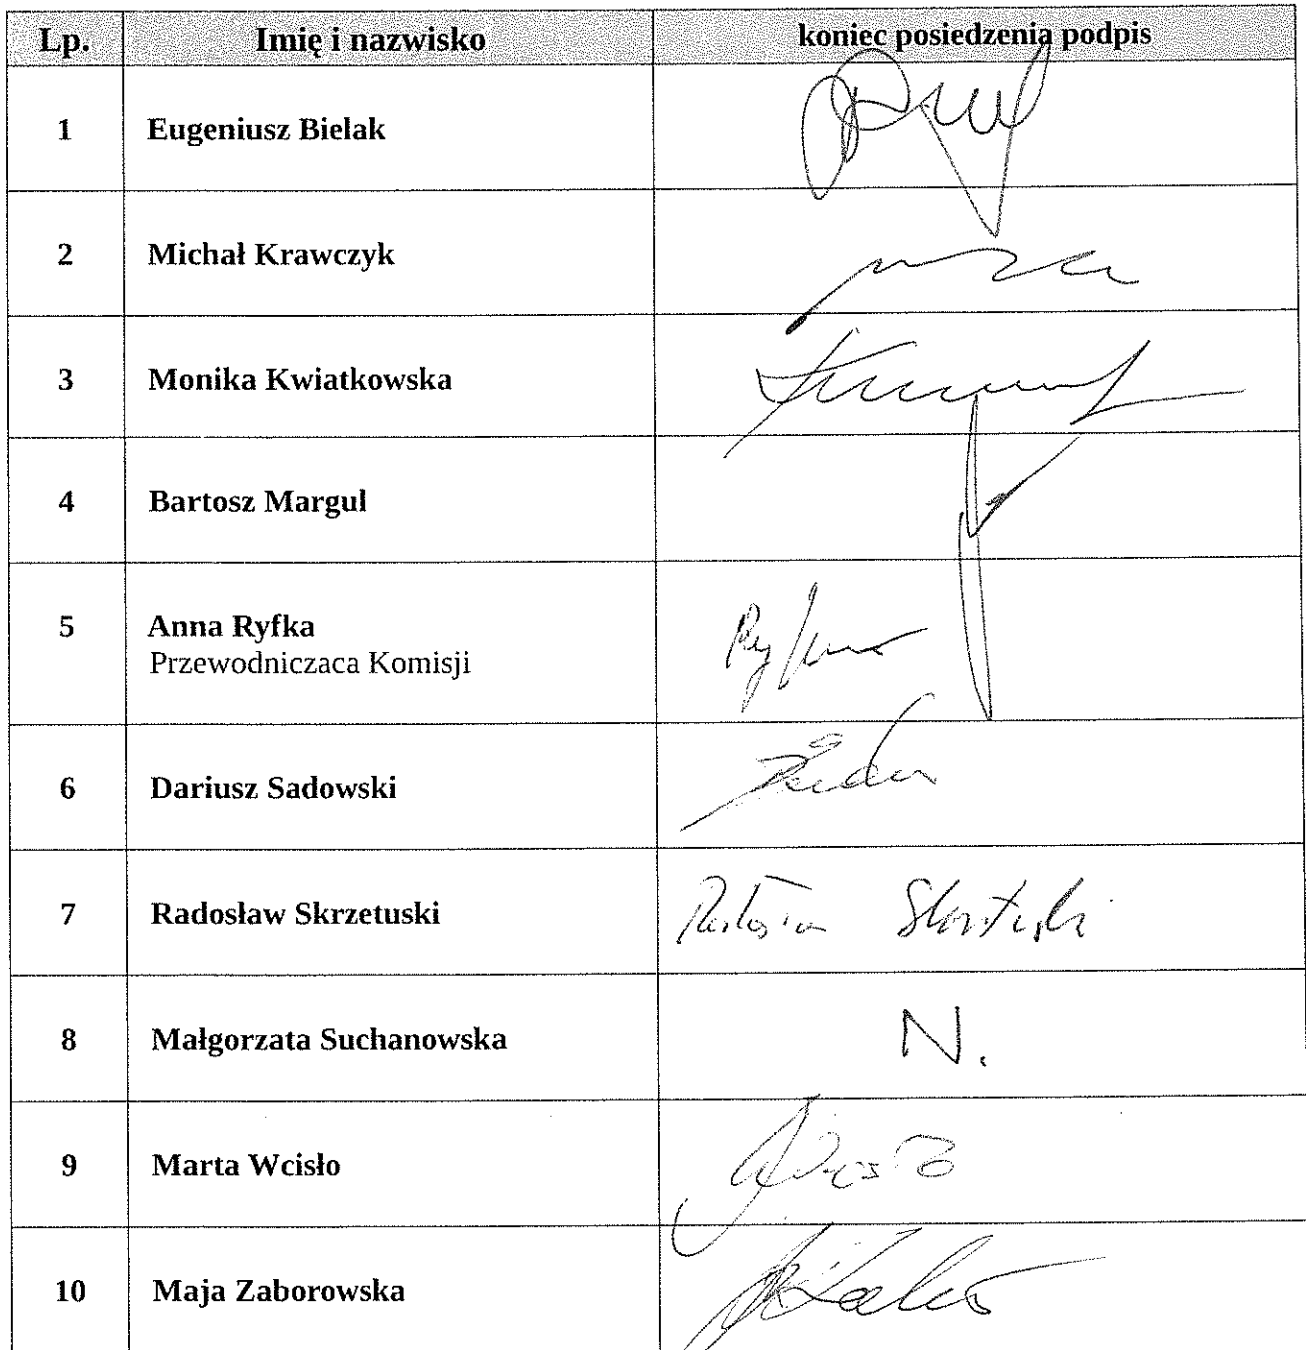 Lp. Imię i nazwisko koniec posiedzenia podpis
1 Eugeniusz Bielak
2 Michał Krawczyk
3 Monika Kwiatkowska
4 Bartosz Margul
5 Anna Ryfka
Przewodniczaca Komisji
6 Dariusz Sadowski
7 Radosław Skrzetuski
8 Małgorzata Suchanowska N.
9 Marta Wcisło
10 Maja Zaborowska